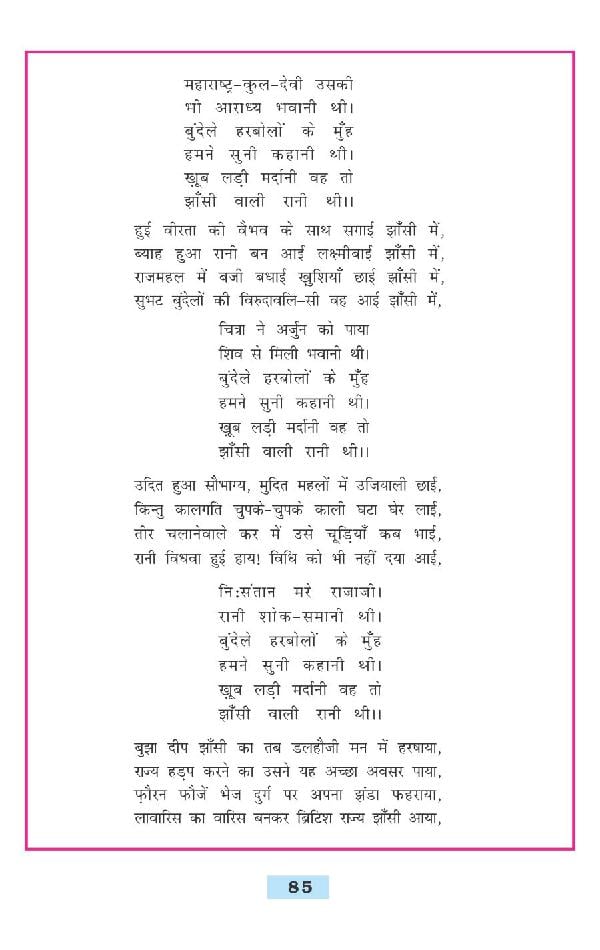 महाराष्ट्र-कुल-देवी उसकी
भी आराध्य भवानी थी।
बुंदेले हरबोलों के मुँह
हमने सुनी कहानी थी।
ख़ूब लड़ी मर्दानी वह तो
झाँसी वाली रानी थी।।
हुई वीरता की वैभव के साथ सगाई झाँसी में,
ब्याह हुआ रानी बन आई लक्ष्मीबाई झाँसी में,
राजमहल में बजी बधाई ख़ुशियाँ छाई झाँसी में,
सुभट बुंदेलों की विरुदावलि-सी वह आई झाँसी में,
चित्रा ने अर्जुन को पाया
शिव से मिली भवानी थी।
बुंदेले हरबोलों के मुँह
हमने सुनी कहानी थी।
ख़ूब लड़ी मर्दानी वह तो
झाँसी वाली रानी थी।।
उदित हुआ सौभाग्य, मुदित महलों में उजियाली छाई,
किन्तु कालगति चुपके-चुपके काली घटा घेर लाई,
तीर चलानेवाले कर में उसे चूड़ियाँ कब भाई,
रानी विधवा हुई हाय! विधि को भी नहीं दया आई,
नि:संतान मरे राजाजी।
रानी शोक-समानी थी।
बुंदेले हरबोलों के मुँह
हमने सुनी कहानी थी।
ख़ूब लड़ी मर्दानी वह तो
झाँसी वाली रानी थी।।
बुझा दीप झाँसी का तब डलहौजी मन में हरषाया,
राज्य हड़प करने का उसने यह अच्छा अवसर पाया,
फ़ौरन फौजें भेज दुर्ग पर अपना झंडा फहराया,
लावारिस का वारिस बनकर ब्रिटिश राज्य झाँसी आया,
85